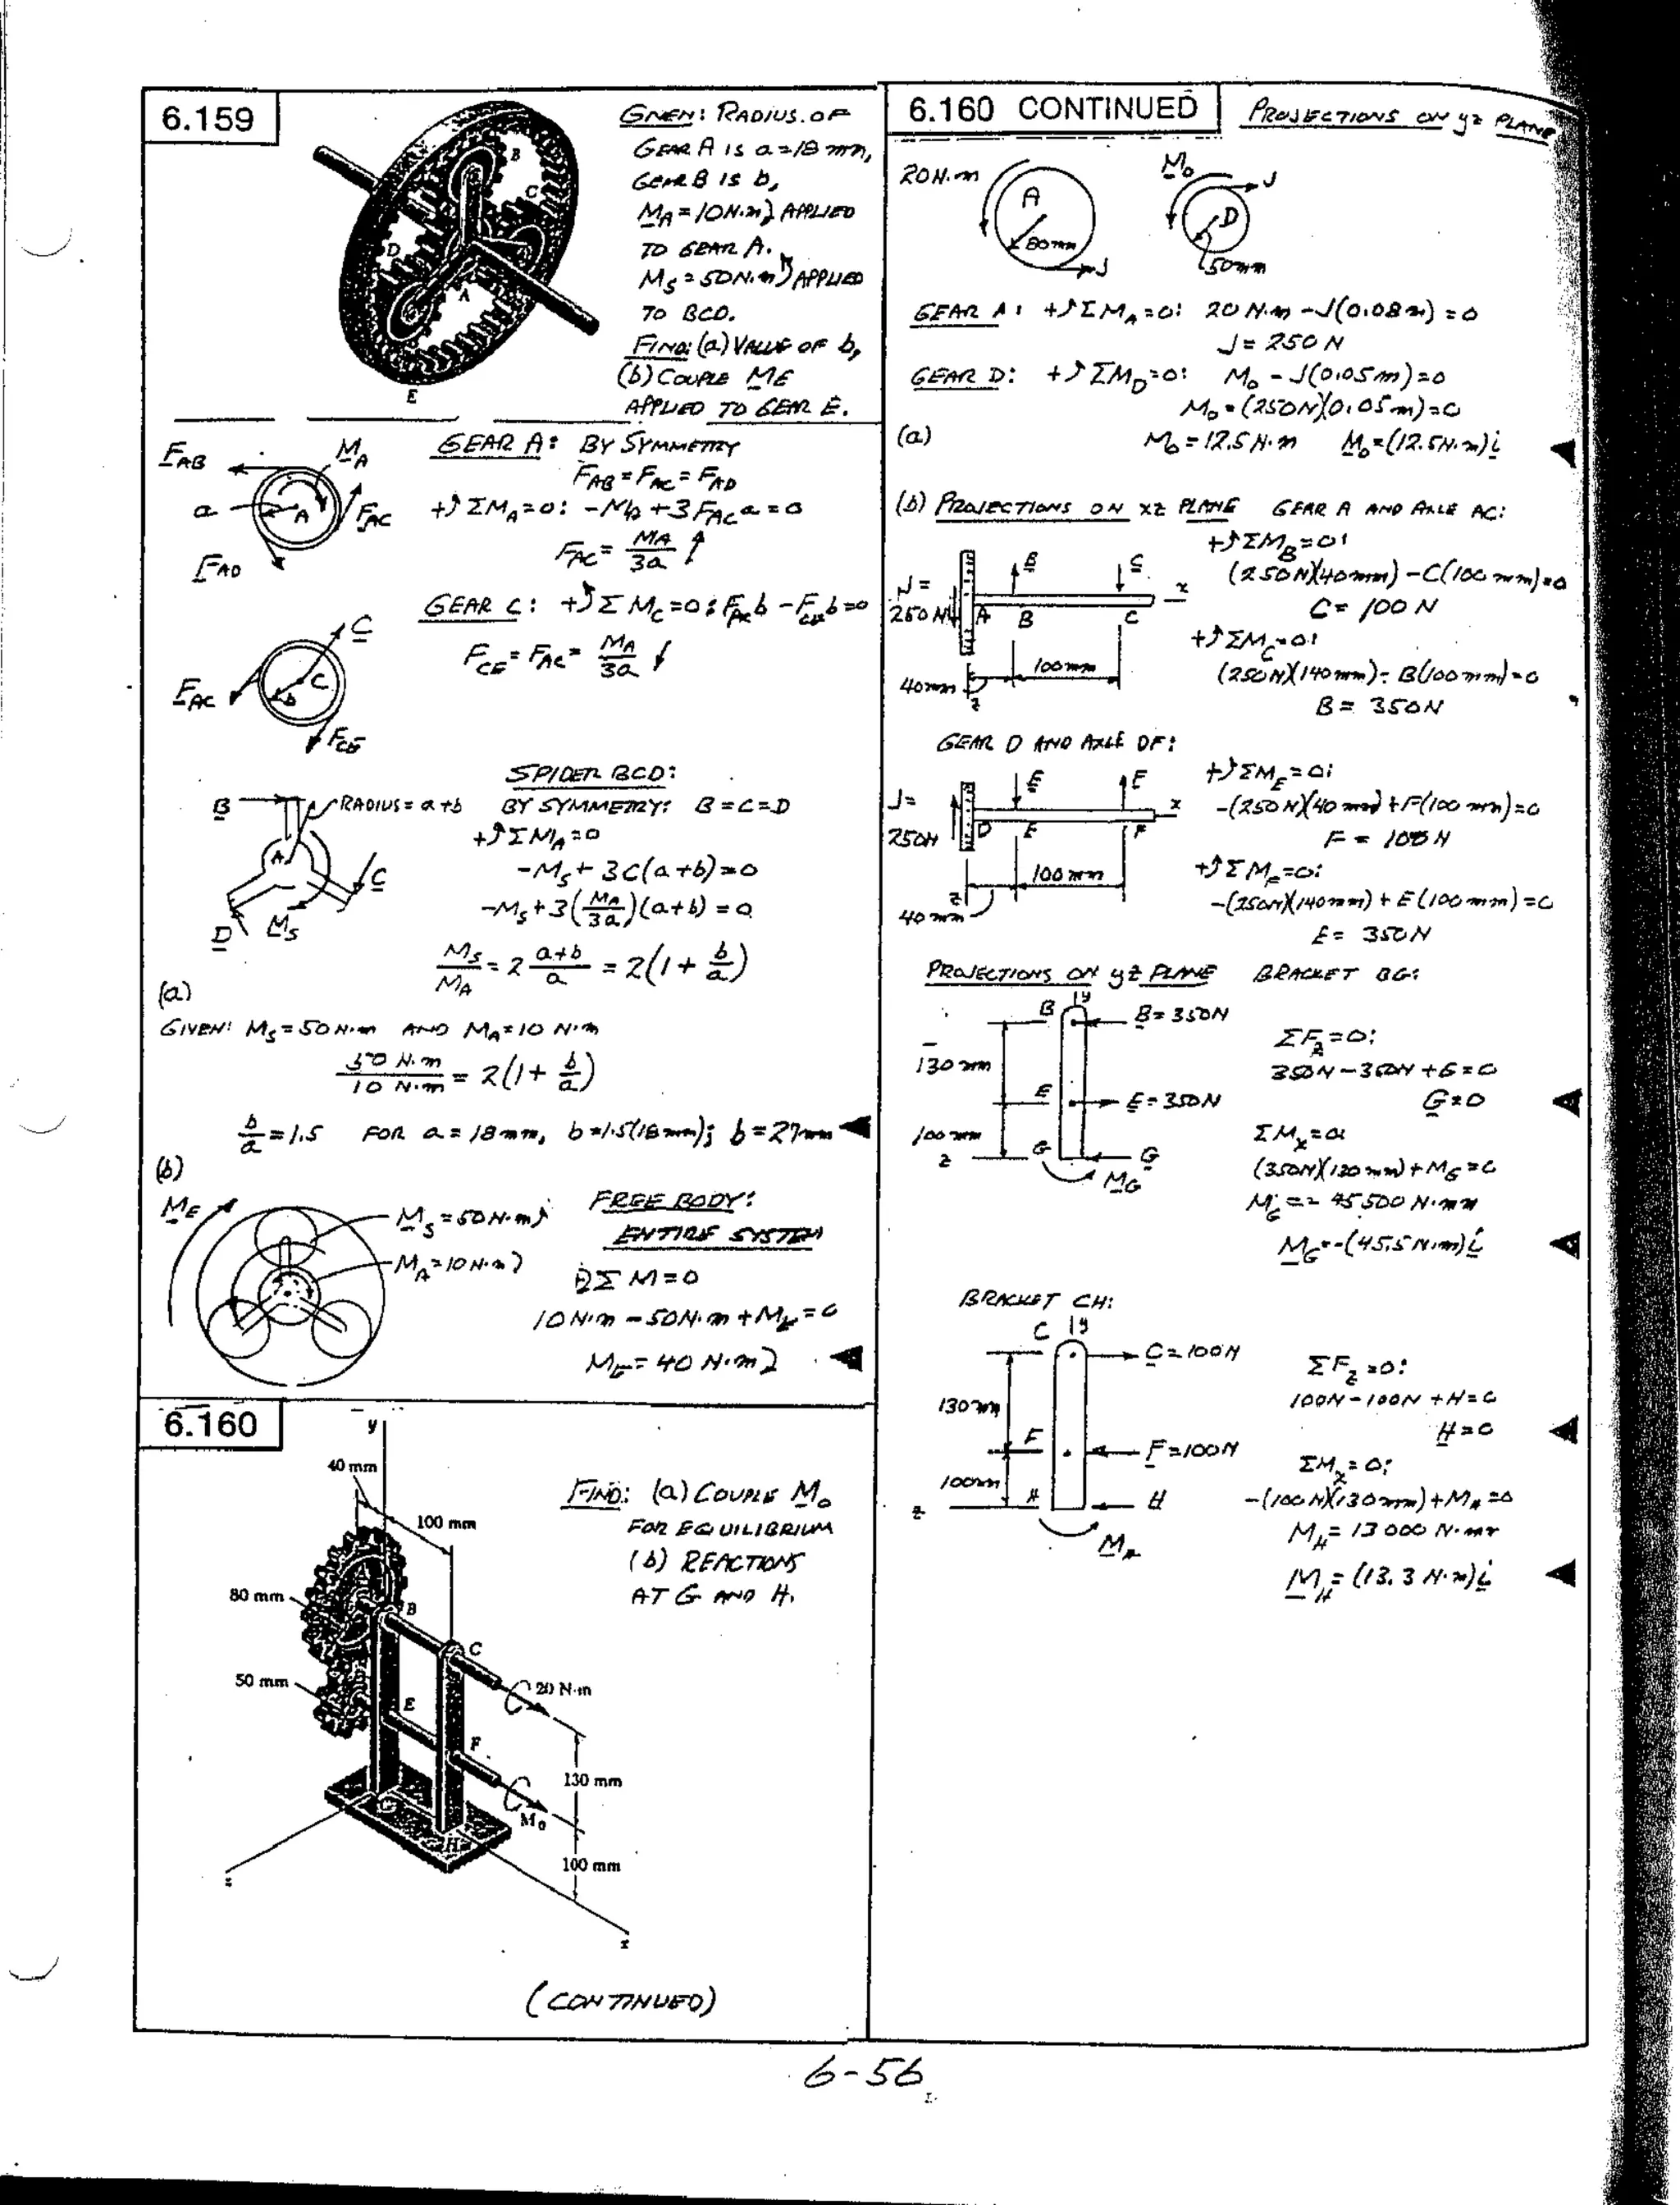 6.159
GIVEN: RADIUS OF
GEAR A IS a = 18 mm,
GEAR B IS b,
M_A = 10 N·m ⤵ APPLIED
TO GEAR A.
M_S = 50 N·m ⤴ APPLIED
TO BCD.
FIND: (a) VALUE OF b,
(b) COUPLE M_E
APPLIED TO GEAR E.
B
C
D
A
E
F_AB
M_A
a
A
F_AC
F_AD
GEAR A: BY SYMMETRY
F_AB = F_AC = F_AD
+↺ ΣM_A = 0: -M_A + 3F_AC a = 0
F_AC = M_A/3a
GEAR C: +↺ ΣM_C = 0: F_AC b - F_CE b = 0
F_CE = F_AC = M_A/3a
C
C
b
F_AC
F_CE
SPIDER BCD:
B
RADIUS = a+b
BY SYMMETRY: B = C = D
+↺ ΣM_A = 0
-M_S + 3C(a+b) = 0
-M_S + 3(M_A/3a)(a+b) = 0
M_S/M_A = 2 (a+b)/a = 2(1 + b/a)
A
C
D
M_S
(a)
GIVEN: M_S = 50 N·m AND M_A = 10 N·m
50 N·m/10 N·m = 2(1 + b/a)
b/a = 1.5 FOR a = 18 mm, b = 1.5(18 mm); b = 27 mm ◄
(b)
M_E
M_S = 50 N·m
M_A = 10 N·m
FREE BODY:
ENTIRE SYSTEM
ΣM = 0
10 N·m - 50 N·m + M_E = 0
M_E = 40 N·m ⤵ ◄
6.160
y
40 mm
100 mm
80 mm
B
C
50 mm
20 N·m
E
F
130 mm
M0
G
H
100 mm
z
x
FIND: (a) COUPLE M_0
FOR EQUILIBRIUM
(b) REACTIONS
AT G AND H.
(CONTINUED)
6.160 CONTINUED
PROJECTIONS ON yz PLANE
20 N·m
A
80 mm
J
M_0
J
D
50 mm
GEAR A: +↺ ΣM_A = 0: 20 N·m - J(0.08 m) = 0
J = 250 N
GEAR D: +↺ ΣM_D = 0: M_0 - J(0.05 m) = 0
M_0 = (250 N)(0.05 m) = 0
(a) M_0 = 12.5 N·m M_0 = (12.5 N·m)i ◄
(b) PROJECTIONS ON xz PLANE GEAR A AND AXLE AC:
+↺ ΣM_B = 0:
(250 N)(40 mm) - C(100 mm) = 0
C = 100 N
+↺ ΣM_C = 0:
(250 N)(140 mm) - B(100 mm) = 0
B = 350 N
J =
250 N
B
C
x
A
B
C
100 mm
40 mm
z
GEAR D AND AXLE DF:
+↺ ΣM_E = 0:
-(250 N)(40 mm) + F(100 mm) = 0
F = 100 N
+↺ ΣM_F = 0:
-(250 N)(140 mm) + E(100 mm) = 0
E = 350 N
J =
250 N
E
F
x
D
E
F
100 mm
z
40 mm
PROJECTIONS ON yz PLANE BRACKET BG:
y
B
B = 350 N
130 mm
E
E = 350 N
100 mm
z
G
G
M_G
ΣF_z = 0:
350 N - 350 N + G = 0
G = 0 ◄
ΣM_x = 0:
(350 N)(130 mm) + M_G = 0
M_G = - 45 500 N·mm
M_G = -(45.5 N·m)i ◄
BRACKET CH:
C
y
C = 100 N
130 mm
F
F = 100 N
100 mm
z
H
H
M_H
ΣF_z = 0:
100 N - 100 N + H = 0
H = 0 ◄
ΣM_x = 0:
-(100 N)(130 mm) + M_H = 0
M_H = 13 000 N·mm
M_H = (13.3 N·m)i ◄
6-56